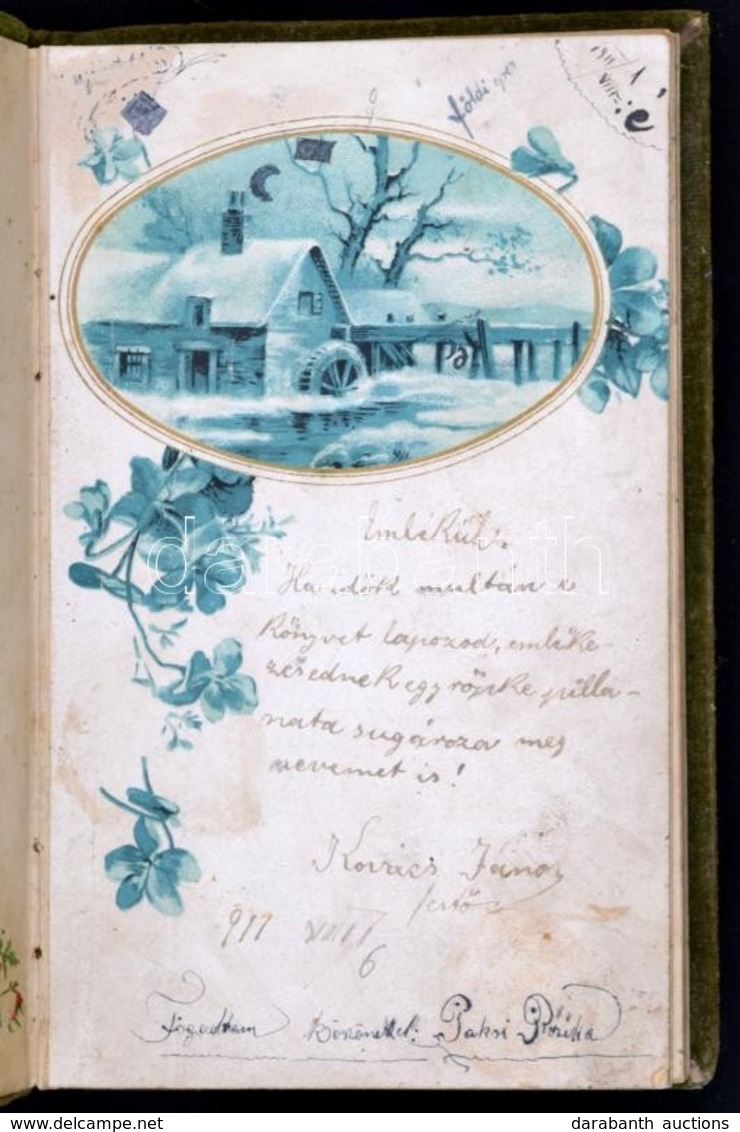 földi
1911
Emlékül.
Ha idők multán e
könyvet lapozod, emléke-
zésednek egy röpke pilla-
nata sugározza meg
nevemet is!
Kovács János
festő
911 VIII
6
Fogadtam köszönettel: Paksi Rózika
darabanth
hu.delcampe.net
darabanth auctions